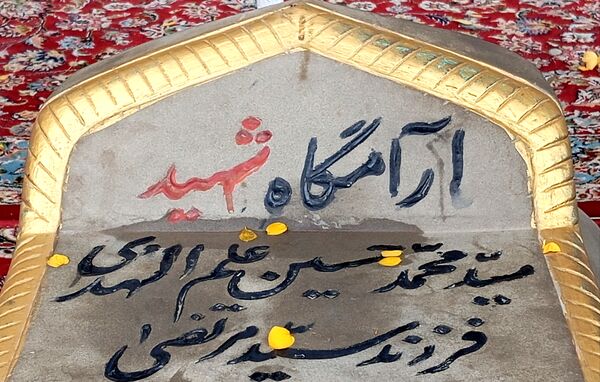 آرامگاه شهید
سید محمد حسین علم الهدی
فرزند سید مرتضی